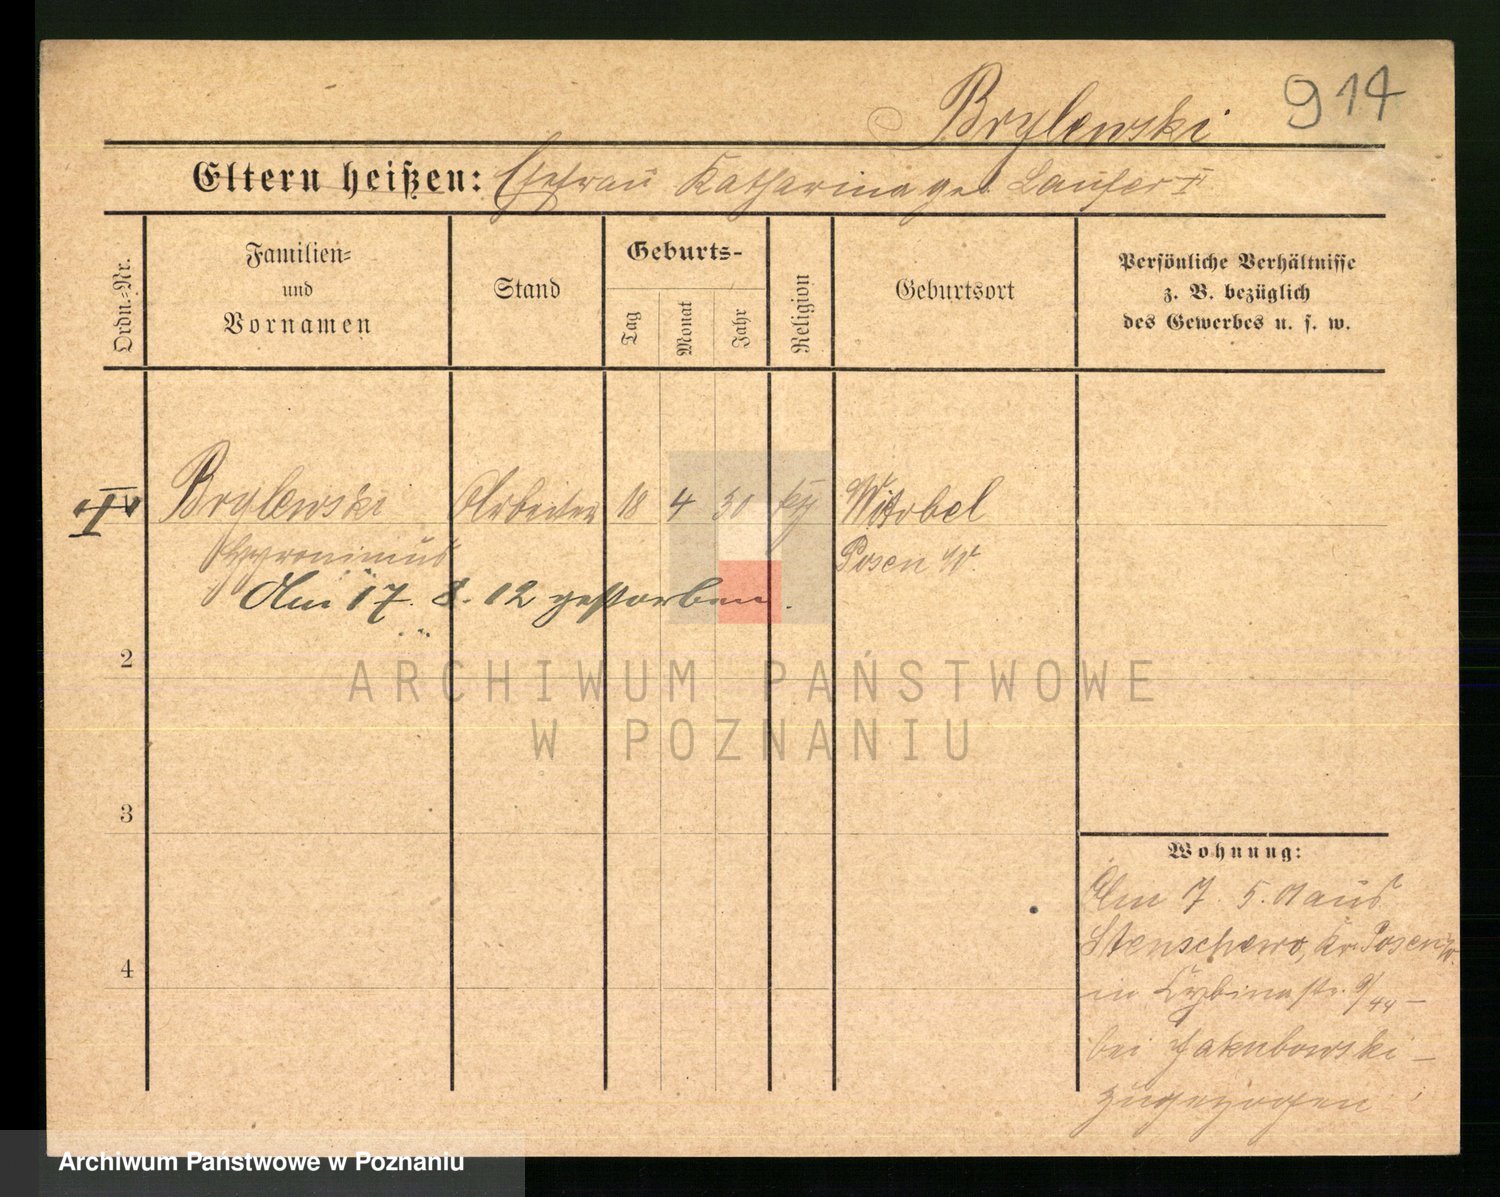 Brylewski 914
Eltern heißen: Ehefrau Katharina geb. Laufer II
Ordn.=Nr.
Familien=
und
Vornamen
Stand
Geburts-
Tag
Monat
Jahr
Religion
Geburtsort
Persönliche Verhältnisse
z. B. bezüglich
des Gewerbes u. s. w.
Brylewski Arbeiter 18 4 50 Witobel
Hyronimus Posen W.
Am 17. 8. 12 gestorben.
2
3
4
Wohnung:
Am 7. 5. 01 aus
Stenschewo, Kr. Posen W.
in Cybinastr. 9/44 -
bei Jakubowski -
zugezogen
ARCHIWUM PAŃSTWOWE
W POZNANIU
Archiwum Państwowe w Poznaniu